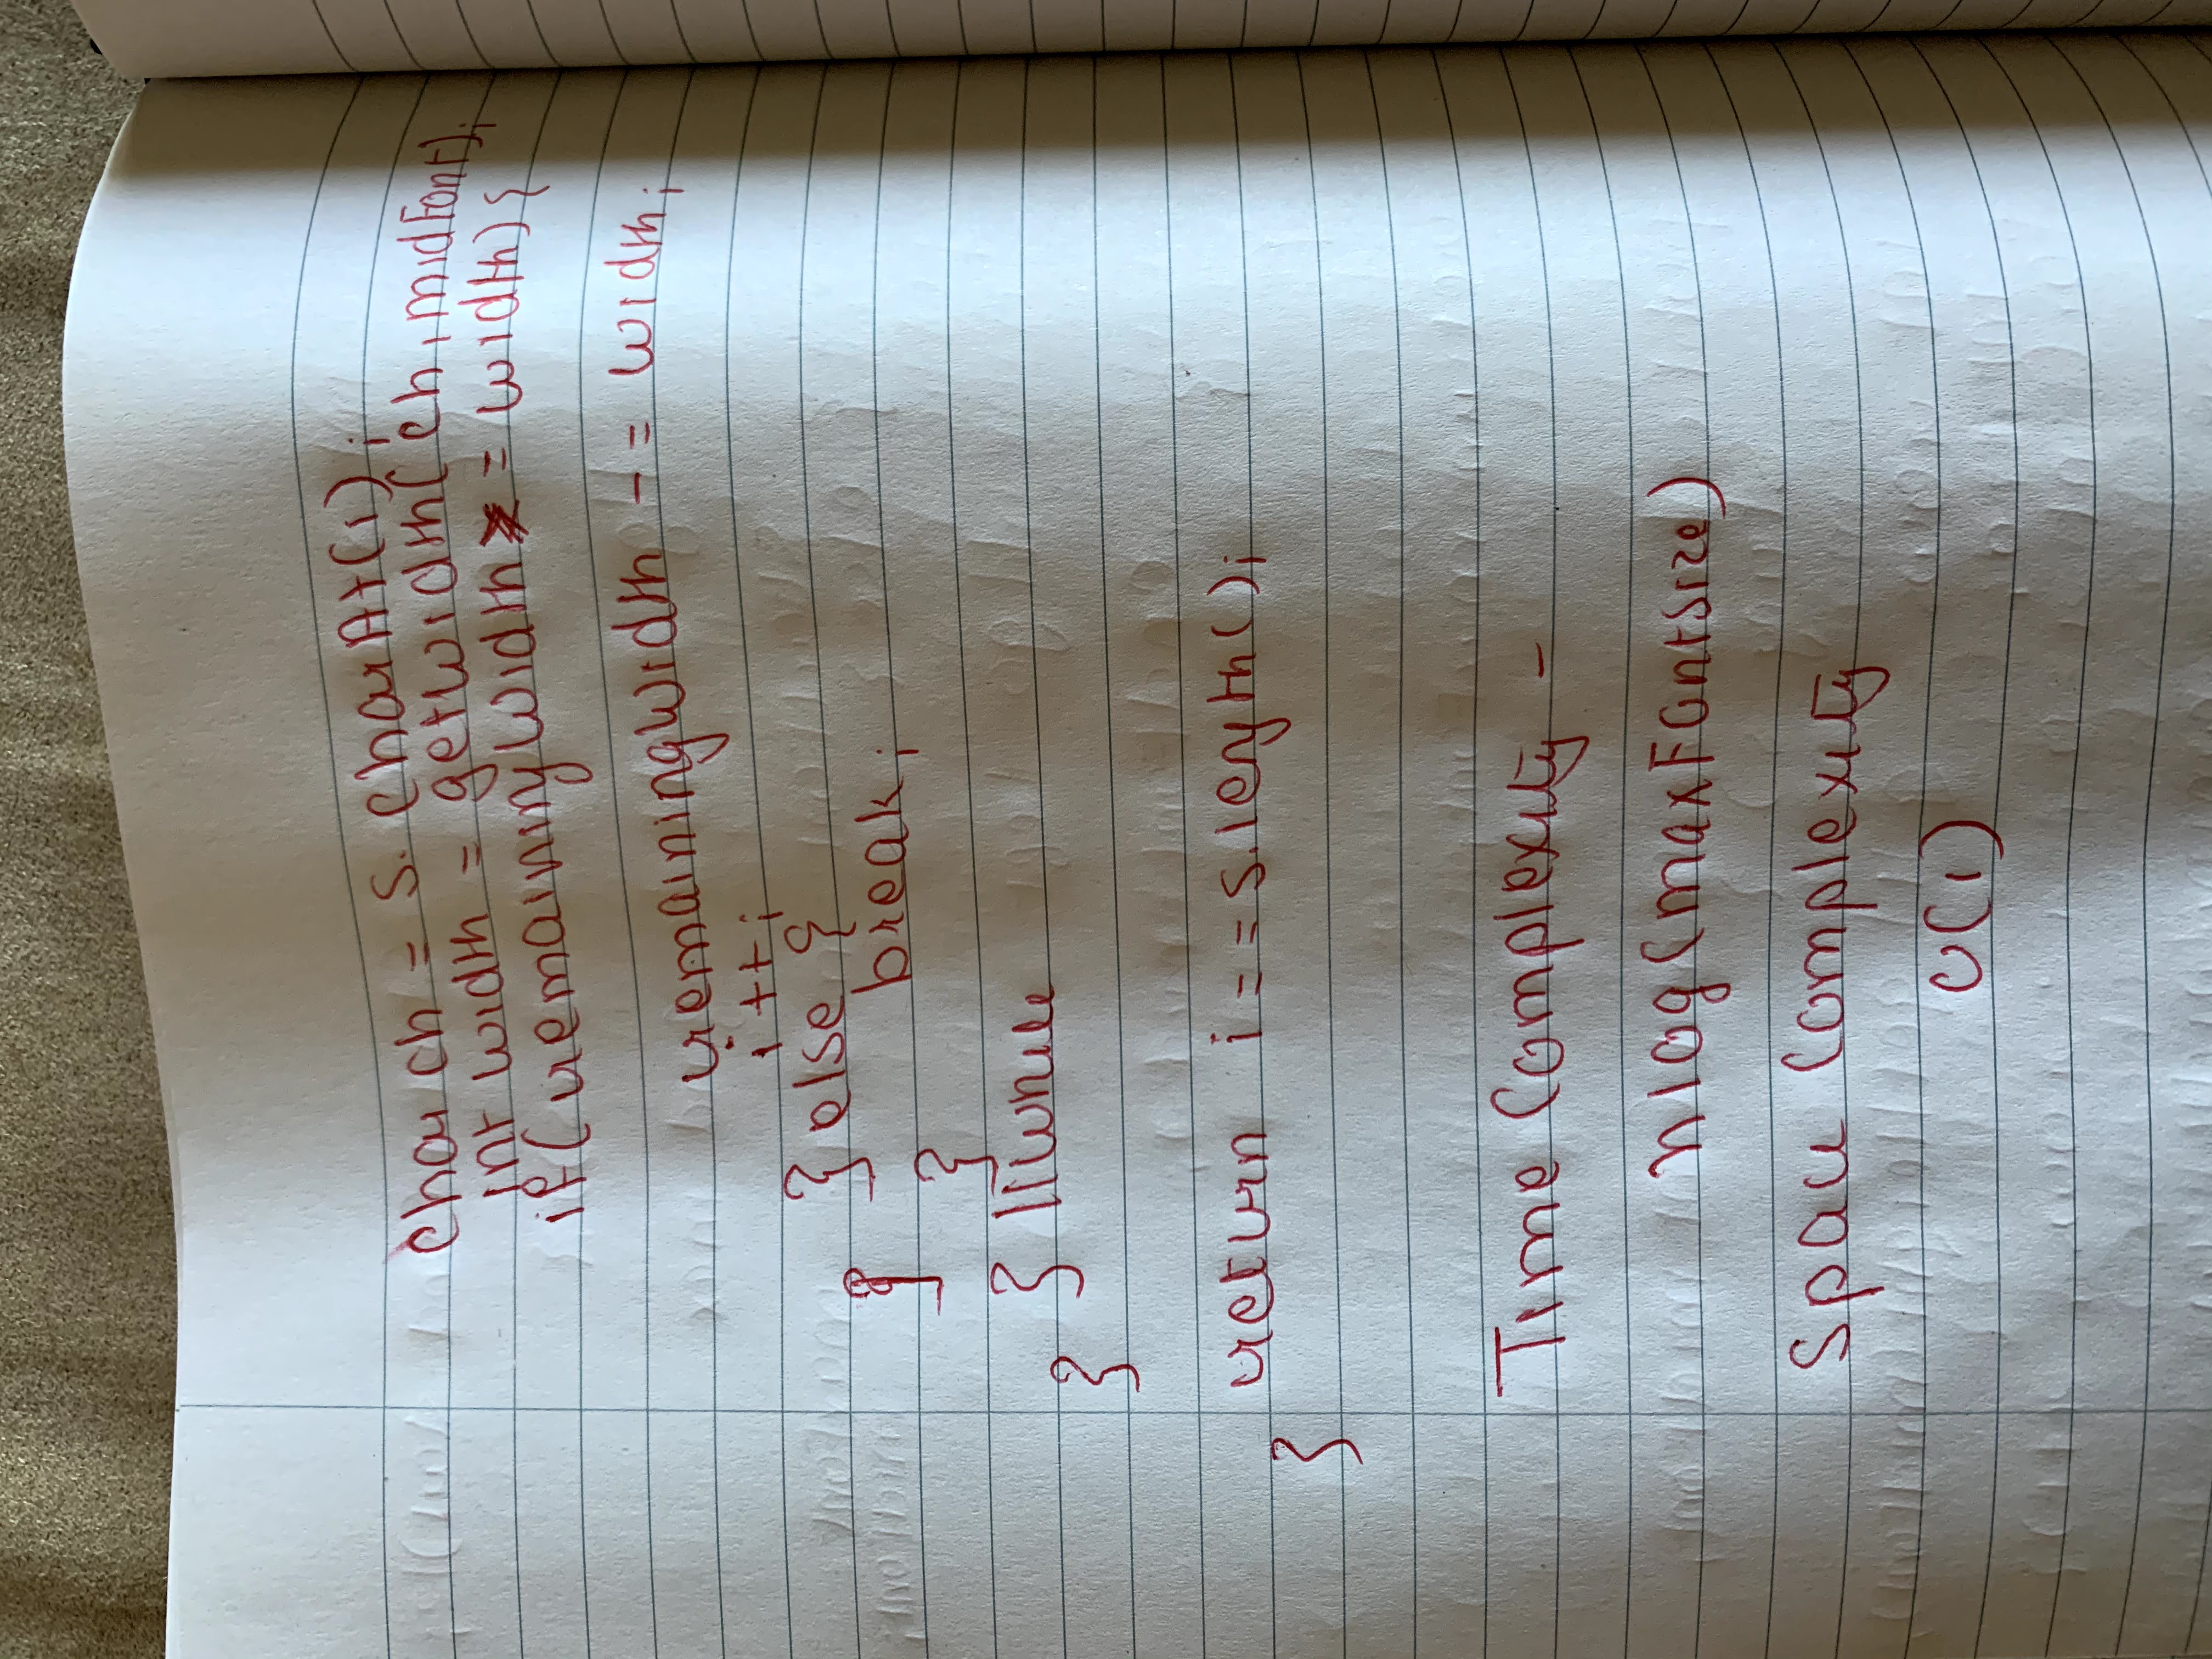 char ch = s.charAt(i);
int width = getwidth(ch, midFont);
if(remainingWidth >= width) {
remainingwidth -= width;
i++;
} else {
break;
}
}
} //while
}
return i == s.length();
}
Time Complexity -
nlog(maxFontSize)
Space Complexity
O(1)